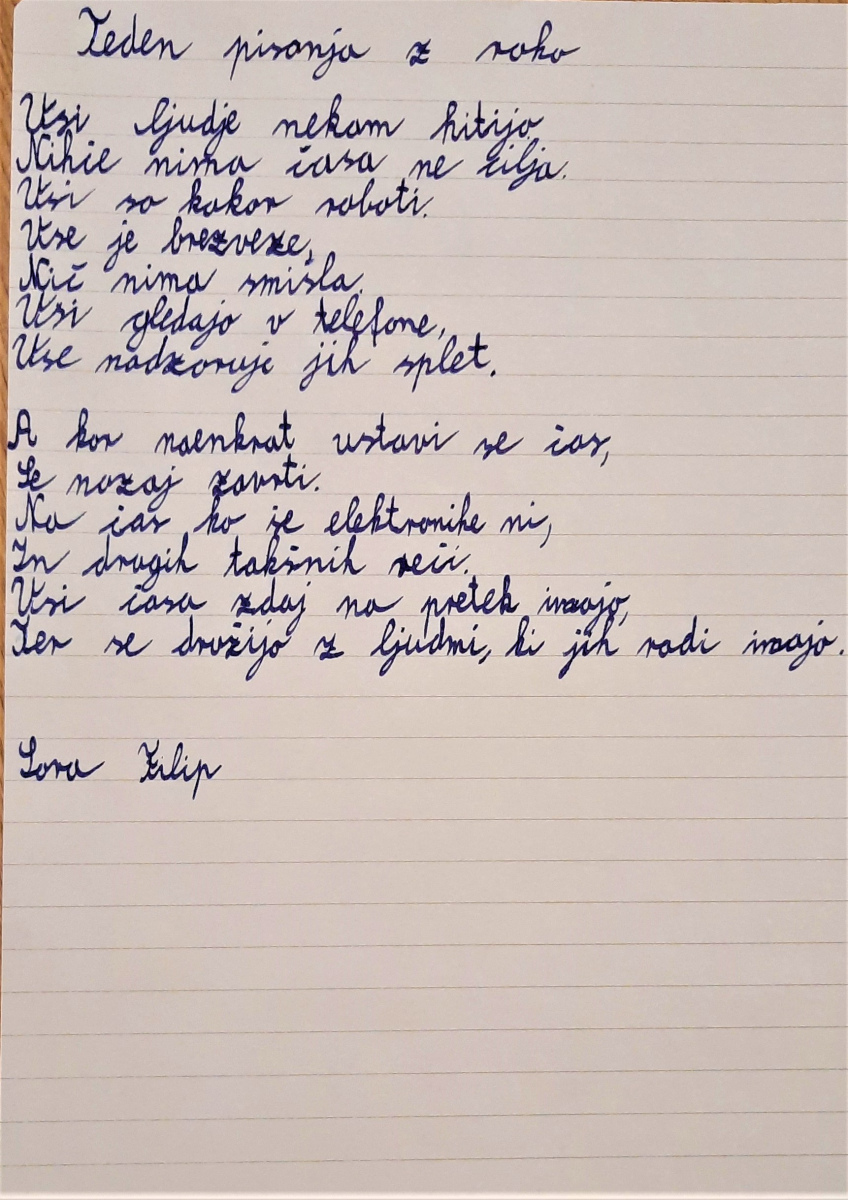 Teden pisanja z roko
Vsi ljudje nekam hitijo
Nihče nima časa ne cilja.
Vsi so kakor roboti.
Vse je brezveze,
Nič nima smisla.
Vsi gledajo v telefone,
Vse nadzoruje jih splet.
A kar naenkrat ustavi se čas,
Se nazaj zavrti.
Na čas ko še elektronike ni,
In drugih takšnih reči.
Vsi časa zdaj na pretek imajo,
Ter se družijo z ljudmi, ki jih radi imajo.
Lara Filip